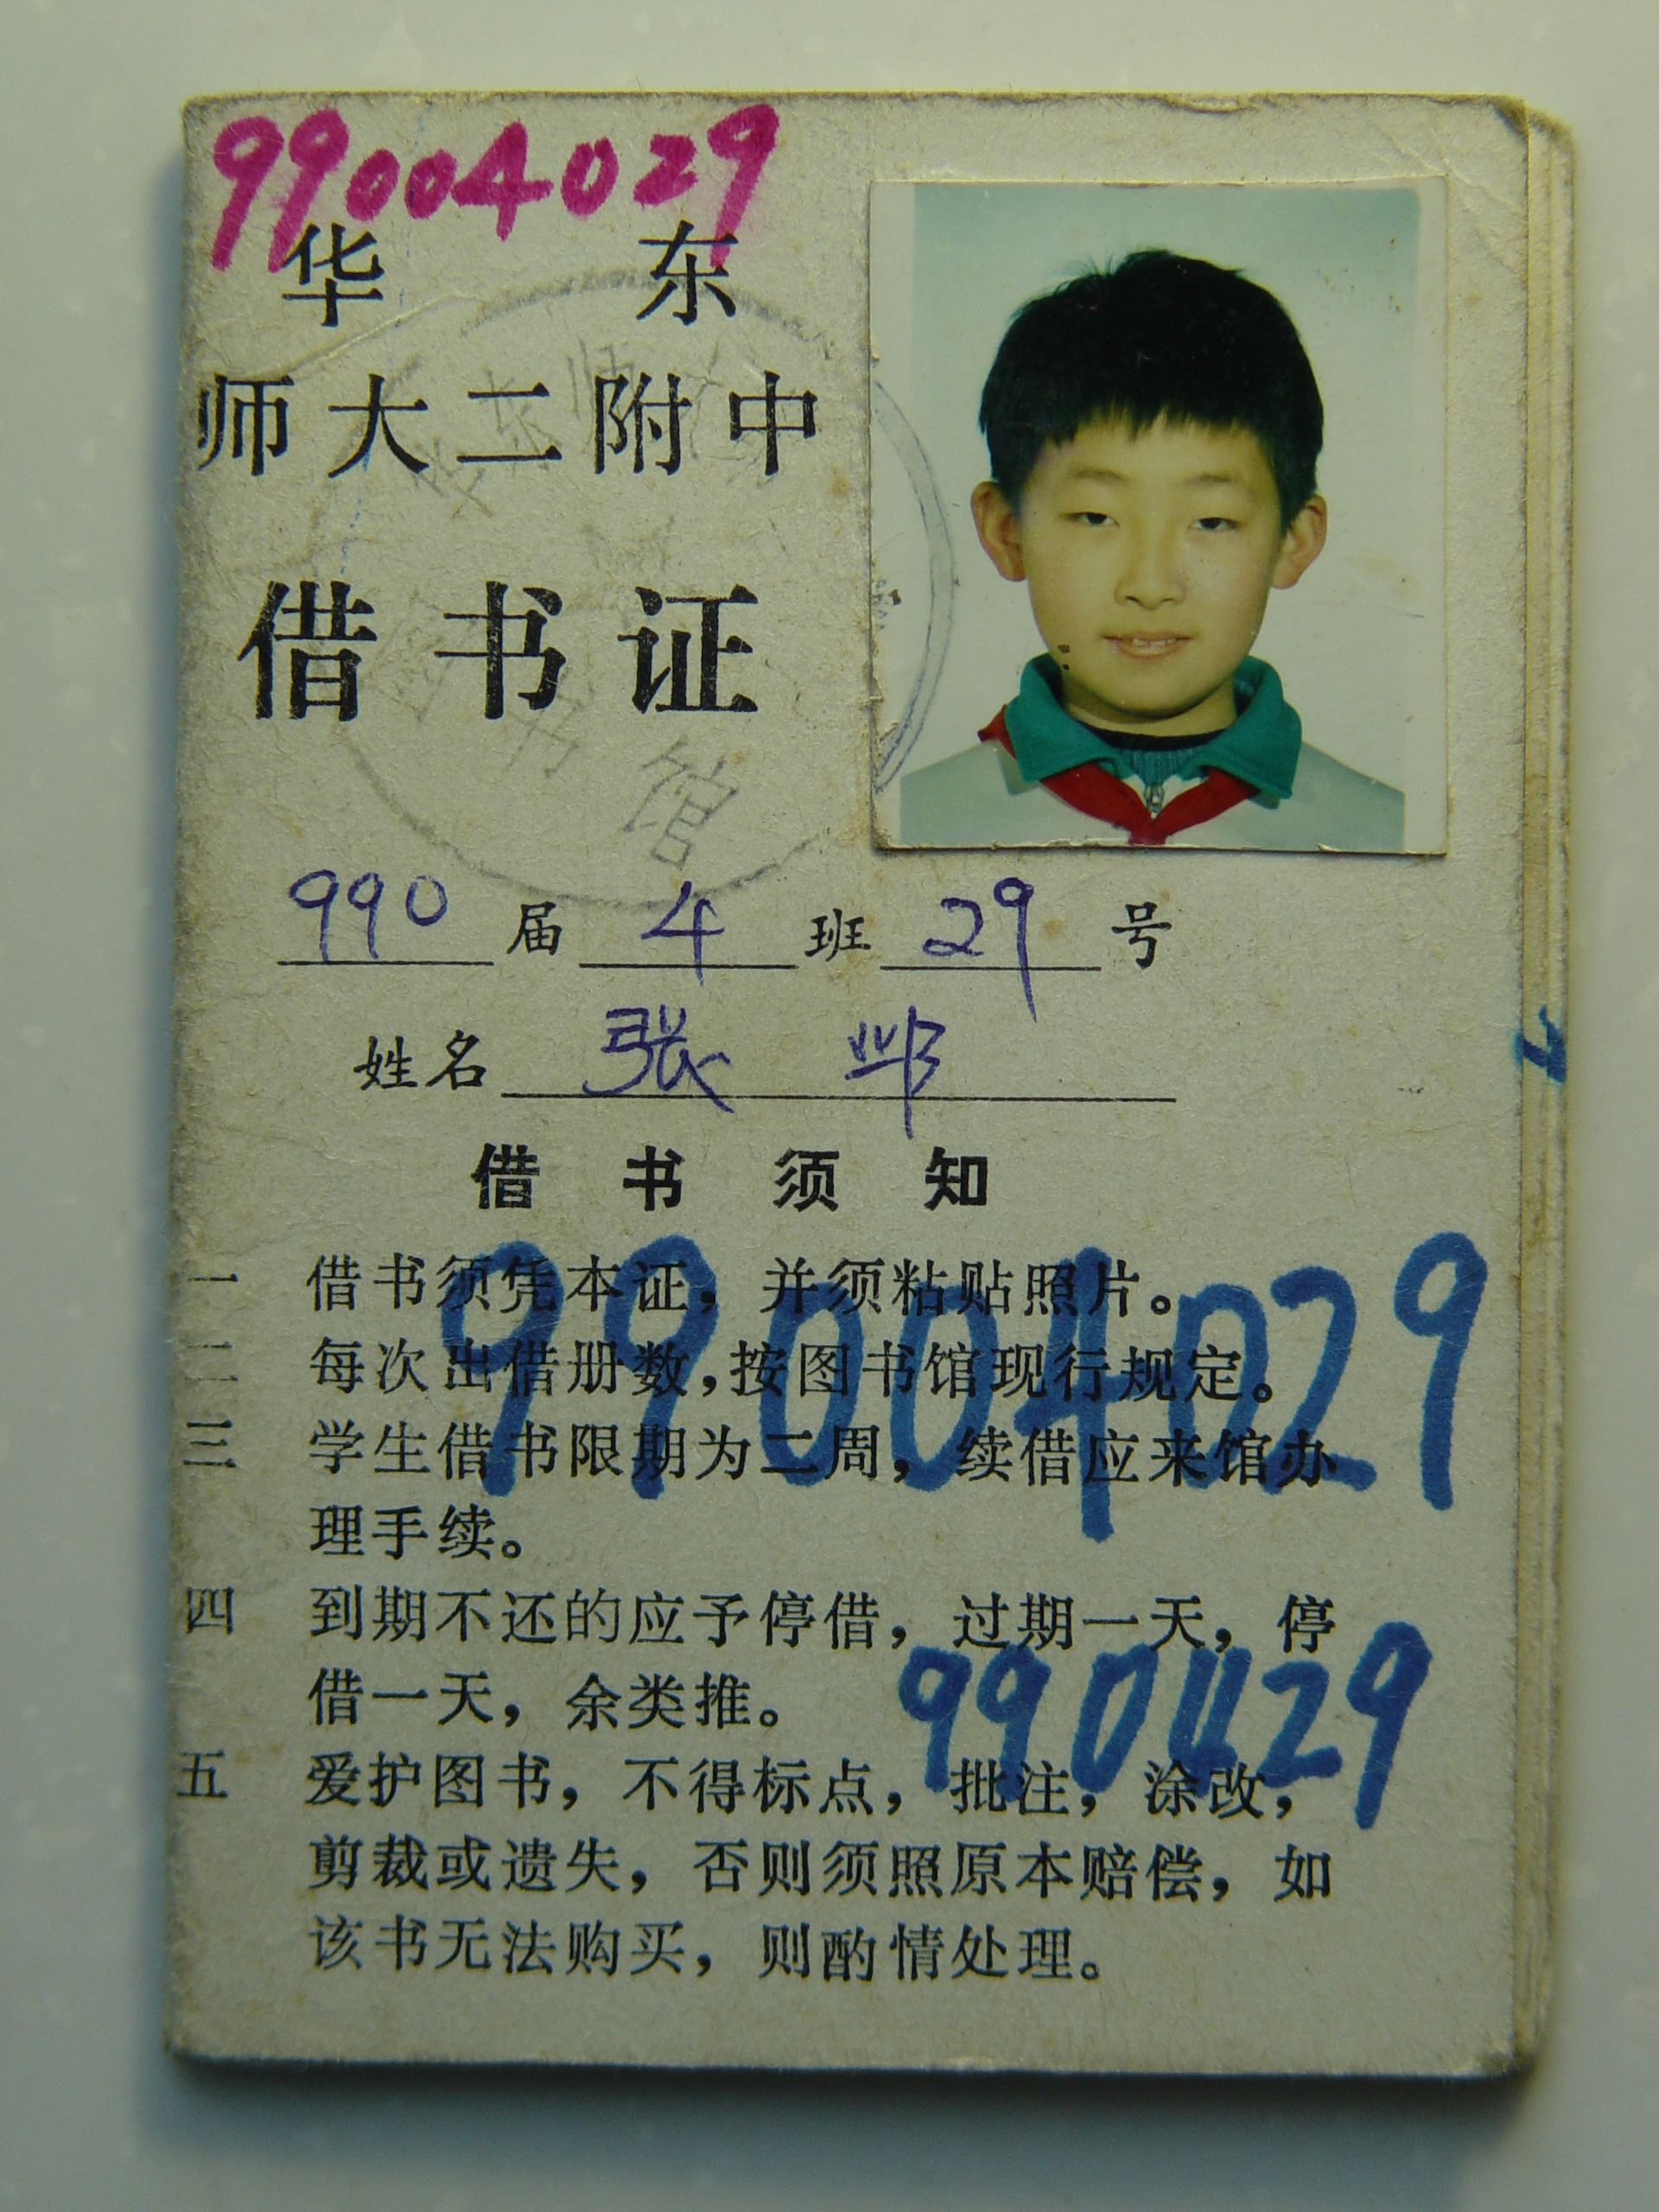 99004029
华东
师大二附中
借书证
990届4班29号
姓名 张邺
借书须知
一 借书须凭本证，并须粘贴照片。
二 每次出借册数，按图书馆现行规定。
三 学生借书限期为二周，续借应来馆办
理手续。
99004029
四 到期不还的应予停借，过期一天，停
借一天，余类推。
990429
五 爱护图书，不得标点，批注，涂改，
剪裁或遗失，否则须照原本赔偿，如
该书无法购买，则酌情处理。